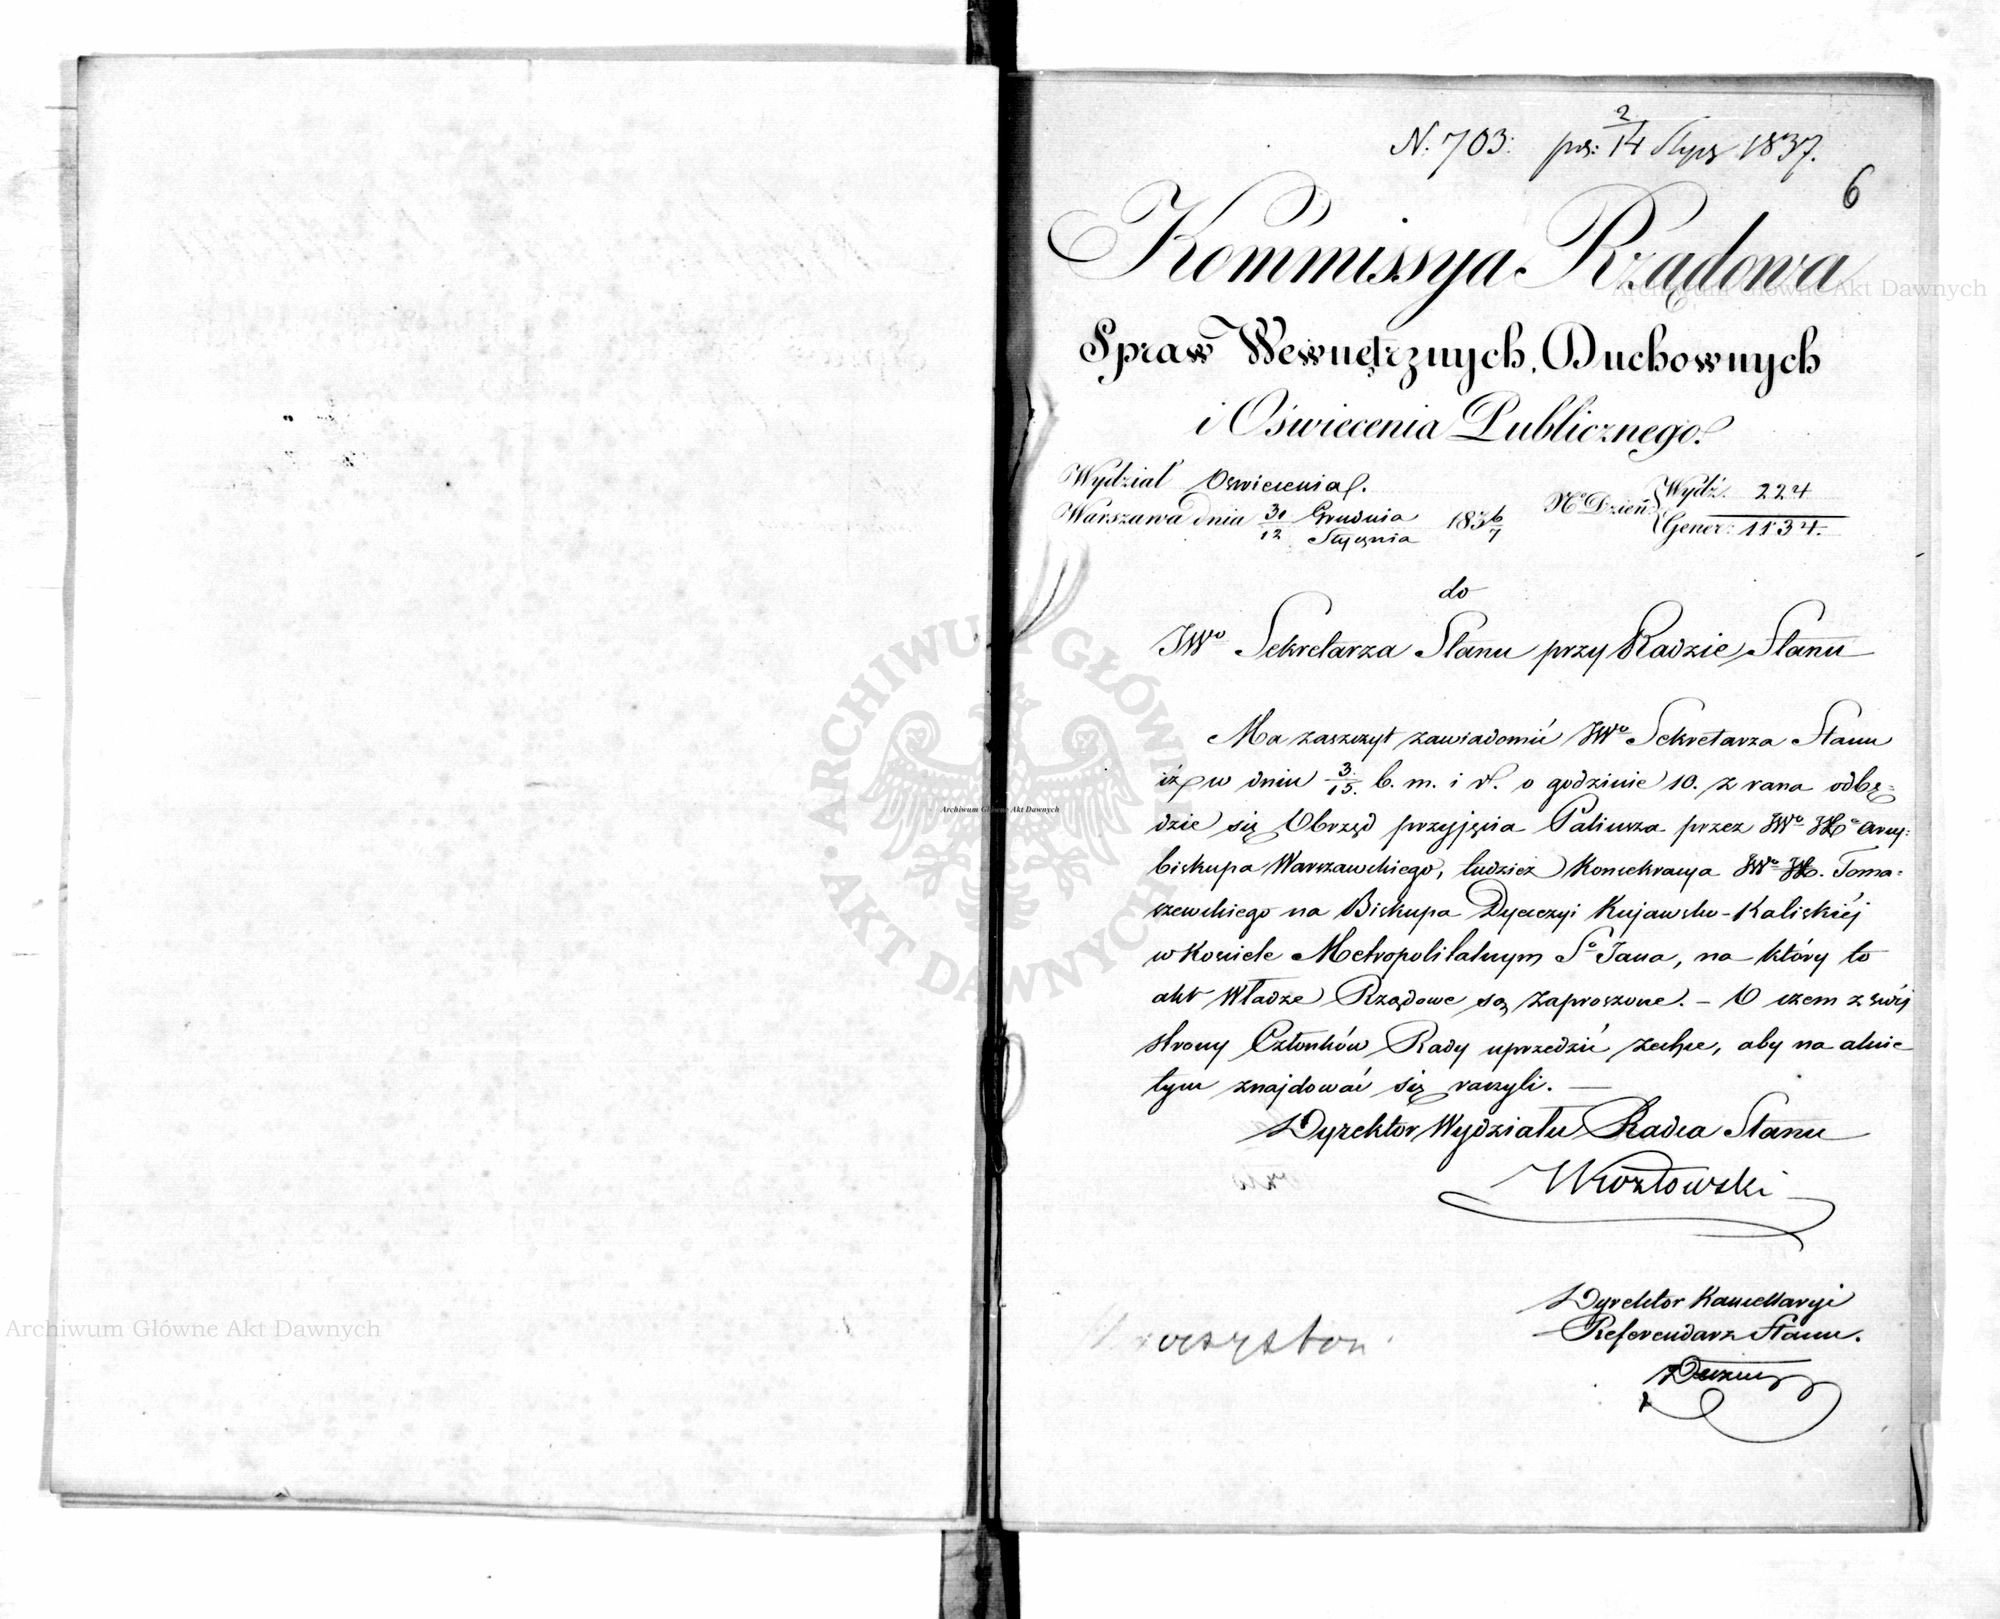 N. 703. prs: 2/14 Stycz 1837.
6
Kommissya Rządowa
Spraw Wewnętrznych, Duchownych
i Oświecenia Publicznego.
Wydział Oświecenia.
Warszawa dnia 31/12 Grudnia/Stycznia 1836/7
No Dzień: Wydź. 224
Gener: 1134.
do
JWo Sekretarza Stanu przy Radzie Stanu
Ma zaszczyt zawiadomić JWo Sekretarza Stanu
iż w dniu 3/15. b. m. i r. o godzinie 10. z rana odbę=
dzie się Obrzęd przyjęcia Paliusza przez JWo Arcy=
biskupa Warszawskiego, tudzież Konsekracya JWo Toma=
szewskiego na Biskupa Dyecezyi Kujawsko-Kaliskiéj
w Kościele Metropolitalnym So Jana, na który to
akt Władze Rządowe są zaproszone. – O czem z swéj
strony Członków Rady uprzedzić zechce, aby na akcie
tym znajdować się raczyli. —
Dyrektor Wydziału Radca Stanu
Kozłowski
Dyrektor Kancellaryi
Referendarz Stanu.
Archiwum Główne Akt Dawnych
ARCHIWUM GŁÓWNE AKT DAWNYCH
Archiwum Główne Akt Dawnych
Archiwum Główne Akt Dawnych